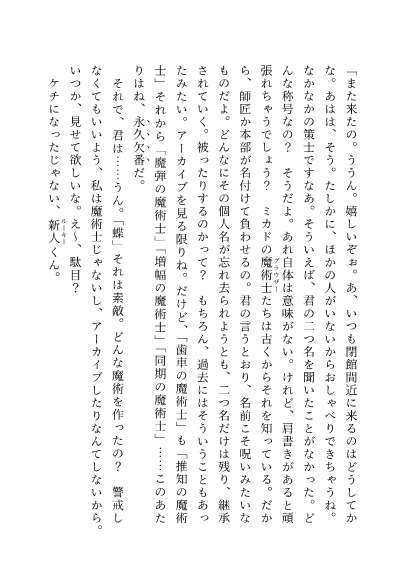 「また来たの。ううん。嬉しいぞぉ。あ、いつも閉館間近に来るのはどうしてか
な。あはは、そう。たしかに、ほかの人がいないからおしゃべりできちゃうね。
なかなかの策士ですなあ。そういえば、君の二つ名を聞いたことがなかった。ど
んな称号なの？　そうだよ。あれ自体は意味がない。けれど、肩書きがあると頑
張れちゃうでしょう？　ミカドの魔術士たちは古くからそれを知っている。だか
ら、師匠か本部が名付けて負わせるの。君の言うとおり、名前こそ呪いみたいな
ものだよ。どんなにその個人名が忘れ去られようとも、二つ名だけは残り、継承
されていく。被ったりするのかって？　もちろん、過去にはそういうこともあっ
たみたい。アーカイブを見る限りね。だけど、「歯車の魔術士」も「推知の魔術
士」それから「魔弾の魔術士」「増幅の魔術士」「同期の魔術士」……このあた
りはね、永久欠番だ。
　それで、君は……うん。「蝶」それは素敵。どんな魔術を作ったの？　警戒し
なくてもいいよう、私は魔術士じゃないし、アーカイブしたりなんてしないから。
いつか、見せて欲しいな。え〜、駄目？
　ケチになったじゃない、新人くん。
ルーキー